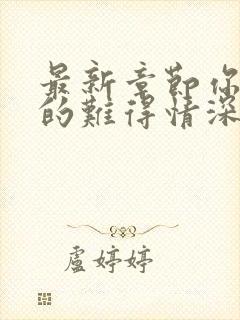 最新章節你
的難得情深
盧婷婷